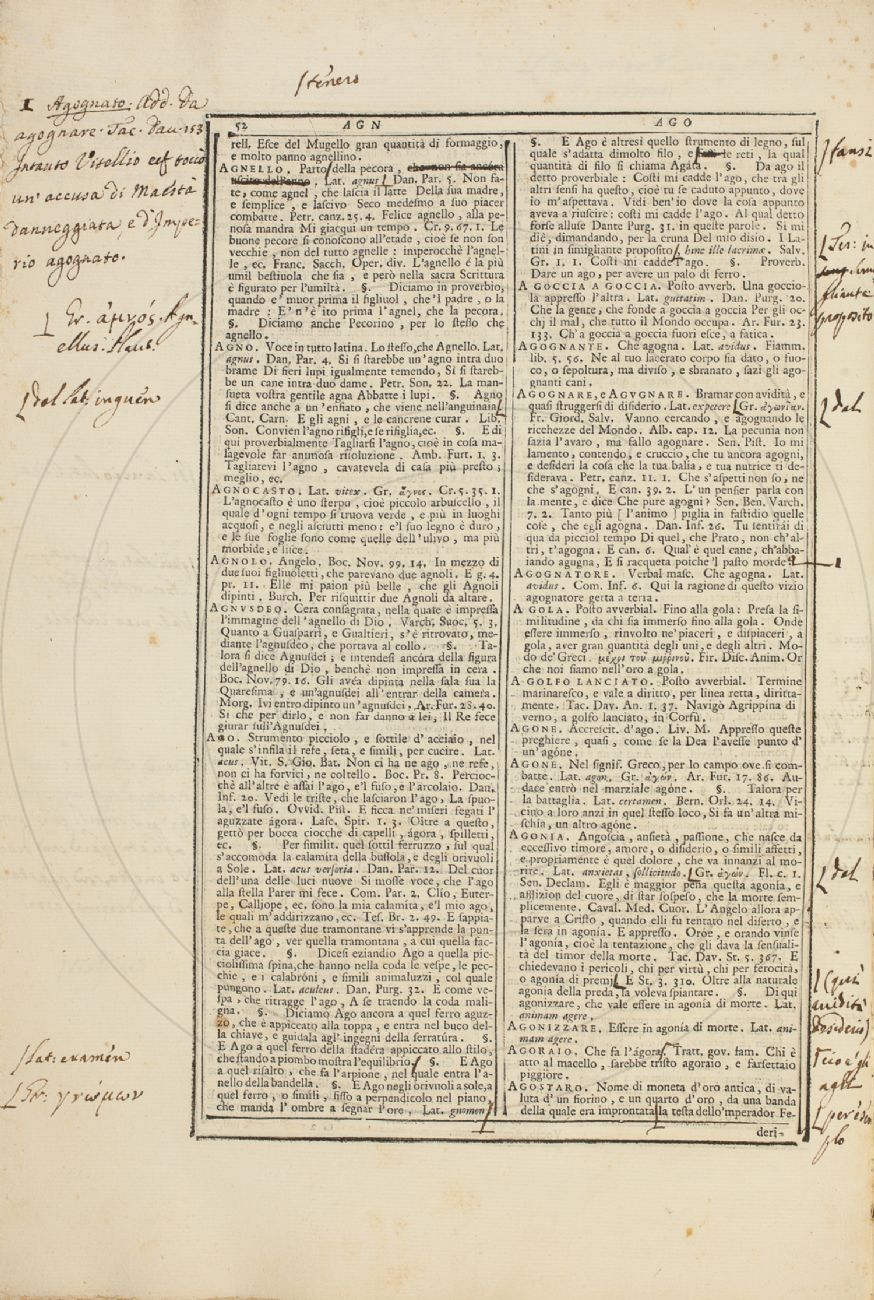 ſtènero
1 Agognato. Add. Da
agognare. Tac. Dav. 153
Intanto Vitellio
un' accusa di Maestà
danneggiata, e d'Impe-
rio agognato.
Gr. ἀμνός.
ellus.
del lat. inguen
lat. examen
Gr. γνώμων
52 AGN
rell. Eſce del Mugello gran quantità di formaggio,
e molto panno agnellino.
AGNELLO. Parto della pecora, che non ſia ancóra
uſcito dell'anno. Lat. agnus. Dan. Par. 5. Non fa-
te, come agnel, che laſcia il latte Della ſua madre,
e ſemplice, e laſcivo Seco medeſmo a ſuo piacer
combatte. Petr. canz. 25. 4. Felice agnello, alla pe-
noſa mandra Mi giacqui un tempo. Cr. 9. 67. 1. Le
buone pecore ſi conoſcono all'etade, cioè ſe non ſon
vecchie, non del tutto agnelle: imperocchè l'agnel-
le, ec. Franc. Sacch. Oper. div. L'agnello é la più
umil beſtiuola che ſia, e però nella ſacra Scrittura
è figurato per l'umiltà. §. Diciamo in proverbio,
quando e' muor prima il figliuol, che 'l padre, o la
madre: E' n'è ito prima l'agnel, che la pecora.
§. Diciamo anche Pecorino, per lo ſteſſo che
agnello.
AGNO. Voce in tutto latina. Lo ſteſſo, che Agnello. Lat.
agnus. Dan. Par. 4. Sì ſi ſtarebbe un'agno intra duo
brame Di fieri lupi igualmente temendo, Sì ſi ſtareb-
be un cane intra duo dame. Petr. Son. 22. La man-
ſueta voſtra gentile agna Abbatte i lupi. §. Agno
ſi dice anche a un 'enfiato, che viene nell'anguinaia.
Cant. Carn. E gli agni, e le cancrene curar. Lib.
Son. Convien l'agno riſigli, e ſe riſiglia, ec. §. E di
qui proverbialmente Tagliarſi l'agno, cioè in coſa ma-
lagevole far animoſa riſoluzione. Amb. Furt. 1. 3.
Tagliatevi l'agno, cavatevela di caſa più preſto;
meglio, ec.
AGNOCASTO. Lat. vitex. Gr. ἄγνος. Cr. 5. 35. 1.
L'agnocaſto è uno ſterpo, cioè piccolo arbuſcello, il
quale d'ogni tempo ſi truova verde, e più in luoghi
acquoſi, e negli aſciutti meno: e'l ſuo legno è duro,
e le ſue foglie ſono come quelle dell'ulivo, ma più
morbide, e liſce.
AGNOLO. Angelo. Boc. Nov. 99. 14. In mezzo di
due ſuoi figliuoletti, che parevano due agnoli. E g. 4.
pr. 11. Elle mi paion più belle, che gli Agnoli
dipinti. Burch. Per riſquittir due Agnoli da altare.
AGNUSDEO. Cera conſagrata, nella quale è impreſſa
l'immagine dell'agnello di Dio. Varch. Suoc. 5. 3.
Quanto a Guaſparri, e Gualtieri, s'è ritrovato, me-
diante l'agnuſdeo, che portava al collo. §. Ta-
lora ſi dice Agnuſdei; e intendeſi ancóra della figura
dell'agnello di Dio, benchè non impreſſa in cera.
Boc. Nov. 79. 16. Gli avéa dipinta nella ſala ſua la
Quareſima, e un'agnuſdei all'entrar della camera.
Morg. Ivi entro dipinto un'agnuſdei. Ar. Fur. 28. 40.
Sì che per dirlo, e non far danno a lei, Il Re fece
giurar ſull'Agnuſdei.
AGO. Strumento picciolo, e ſottile d'acciaio, nel
quale s'infila il refe, ſeta, e ſimili, per cucire. Lat.
acus. Vit. S. Gio. Bat. Non ci ha ne ago, ne refe,
non ci ha forvici, ne coltello. Boc. Pr. 8. Percioc-
chè all'altre è aſſai l'ago, e'l fuſo, e l'arcolaio. Dan.
Inf. 20. Vedi le triſte, che laſciaron l'ago, La ſpuo-
la, e'l fuſo. Ovvid. Piſt. E ficca ne'miſeri fegati l'
aguzzate ágora. Laſc. Spir. 1. 3. Oltre a queſto,
gettò per bocca ciocche di capelli, ágora, ſpilletti,
ec. §. Per ſimilit. quel ſottil ferruzzo, ſul qual
s'accomoda la calamita della buſſola, e degli orivuoli
a Sole. Lat. acus verſoria. Dan. Par. 12. Del cuor
dell'una delle luci nuove Si moſſe voce, che l'ago
alla ſtella Parer mi fece. Com. Par. 2. Clío, Euter-
pe, Calliope, ec. ſono la mia calamita, e'l mio ago,
le quali m'addirizzano, ec. Teſ. Br. 2. 49. E ſappia-
te, che a queſte due tramontane vi s'apprende la pun-
ta dell'ago, ver quella tramontana, a cui quella fac-
cia giace. §. Diceſi eziandio Ago a quella pic-
cioliſſima ſpina, che hanno nella coda le veſpe, le pec-
chie, e i calabróni, e ſimili animaluzzi, col quale
pungono. Lat. aculeus. Dan. Purg. 32. E come ve-
ſpa, che ritragge l'ago, A ſe traendo la coda mali-
gna. §. Diciamo Ago ancora a quel ferro aguz-
zo, che è appiccato alla toppa, e entra nel buco del-
la chiave, e guidala agl'ingegni della ſerratura. §.
E Ago a quel ferro della ſtadéra appiccato allo ſtilo,
che ſtando a piombo moſtra l'equilibrio. §. E Ago
a quel riſalto, che fa l'arpione, nel quale entra l'a-
nello della bandella. §. E Ago negli orivuoli a ſole, a
quel ferro, o ſimili, fiſſo a perpendicolo nel piano,
che manda l'ombre a ſegnar l'ore. Lat. gnomon.
AGO
§. E Ago è altresì quello ſtrumento di legno, ſul
quale s'adatta dimolto filo, e le reti, la qual
quantità di filo ſi chiama Agáta. §. Da ago il
detto proverbiale: Coſtì mi cadde l'ago, che tra gli
altri ſenſi ha queſto, cioè tu ſe' caduto appunto, dove
io m'aſpettava. Vidi ben'io dove la coſa appunto
aveva a riuſcire: coſtì mi cadde l'ago. Al qual detto
forſe alluſe Dante Purg. 31. in queſte parole. Sì mi
diè, dimandando, per la cruna Del mio diſio. I La-
tini in ſimigliante propoſito, hinc ille lacrimæ. Salv.
Gr. 1. 1. Coſtì mi cadde l'ago. §. Proverb.
Dare un ago, per avere un palo di ferro.
A GOCCIA A GOCCIA. Poſto avverb. Una goccio-
la appreſſo l'altra. Lat. guttatim. Dan. Purg. 20.
Che la gente, che fonde a goccia a goccia Per gli oc-
chj il mal, che tutto il Mondo occupa. Ar. Fur. 23.
133. Ch'a goccia a goccia fuori eſce, a fatica.
AGOGNANTE. Che agogna. Lat. avidus. Fiamm.
lib. 5. 56. Ne al tuo lacerato corpo ſia dato, o fuo-
co, o ſepoltura, ma diviſo, e sbranato, ſazj gli ago-
gnanti cani.
AGOGNARE, e AGUGNARE. Bramar con avidità, e
quaſi ſtruggerſi di diſiderio. Lat. expetere. Gr. ἀγωνιᾶν.
Fr. Giord. Salv. Vanno cercando, e agognando le
ricchezze del Mondo. Alb. cap. 12. La pecunia non
ſazia l'avaro, ma fallo agognare. Sen. Piſt. Io mi
lamento, contendo, e cruccio, che tu ancora agogni,
e deſideri la coſa che la tua balia, e tua nutrice ti de-
ſiderava. Petr. canz. 11. 1. Che s'aſpetti non ſo, ne
che s'agogni. E can. 39. 2. L'un penſier parla con
la mente, e dice Che pure agogni? Sen. Ben. Varch.
7. 2. Tanto più [l'animo] piglia in faſtidio quelle
coſe, che egli agogna. Dan. Inf. 26. Tu ſentirái di
qua da picciol tempo Di quel, che Prato, non ch'al-
tri, t'agogna. E can. 6. Qual'è quel cane, ch'abba-
iando agugna, E ſi racqueta poiche 'l paſto morde.
AGOGNATORE. Verbal maſc. Che agogna. Lat.
avidus. Com. Inf. 6. Qui la ragione di queſto vizio
agognatore getta a terra.
A GOLA. Poſto avverbial. Fino alla gola: Preſa la ſi-
militudine, da chi ſia immerſo fino alla gola. Onde
eſſere immerſo, rinvolto ne'piaceri, e diſpiaceri, a
gola, aver gran quantità degli uni, e degli altri. Mo-
do de' Greci. Fir. Diſc. Anim. Or
che noi ſiamo nell'oro a gola.
A GOLFO LANCIATO. Poſto avverbial. Termine
marinareſco, e vale a diritto, per linea retta, diritta-
mente. Tac. Dav. An. 1. 37. Navigò Agrippina di
verno, a golfo lanciato, in Corfù.
AGONE. Accreſcit. d'ago. Liv. M. Appreſſo queſte
preghiere, quaſi, come ſe la Dea l'aveſſe punto d'
un'agóne.
AGONE. Nel ſignif. Greco, per lo campo ove ſi com-
batte. Lat. agon. Gr. ἀγών. Ar. Fur. 17. 86. Au-
dace entrò nel marziale agóne. §. Talora per
la battaglia. Lat. certamen. Bern. Orl. 24. 14. Vi-
cino a loro anzi in quel ſteſſo loco, Si fa un'altra mi-
ſchia, un altro agóne.
AGONIA. Angoſcia, anſietà, paſſione, che naſce da
ecceſſivo timore, amore, o diſiderio, o ſimili affetti,
e propriamente è quel dolore, che va innanzi al mo-
rire. Lat. anxietas, ſollicitudo. Gr. ἀγών. Fl. c. 1.
Sen. Declam. Egli è maggior pena queſta agonia, e
afflizion del cuore, di ſtar ſoſpeſo, che la morte ſem-
plicemente. Caval. Med. Cuor. L'Angelo allora ap-
parve a Criſto, quando elli fu tentato nel diſerto, e
la ſera in agonía. E appreſſo. Oróe, e orando vinſe
l'agonía, cioè la tentazione, che gli dava la ſenſuali-
tà del timor della morte. Tac. Dav. St. 5. 367. E
chiedevano i pericoli, chi per virtù, chi per ferocità,
o agonía di premj. E St. 3. 310. Oltre alla naturale
agonia della preda, la voleva ſpiantare. §. Di qui
agonizzare, che vale eſſere in agonía di morte. Lat.
animam agere.
AGONIZZARE. Eſſere in agonía di morte. Lat. ani-
mam agere.
AGORAIO. Che fa l'ágora. Tratt. gov. fam. Chi è
atto al macello, ſarebbe triſto agoraio, e farſettaio
piggiore.
AGOSTARO. Nome di moneta d'oro antica, di va-
luta d'un fiorino, e un quarto d'oro, da una banda
della quale era improntata la teſta dello'mperador Fe-
deri-
fansi
Ter: in
gliante
proposito
dal
1
dal
(qui
avidità
desiderio)
cioè gli
aghi
per esem-
plo